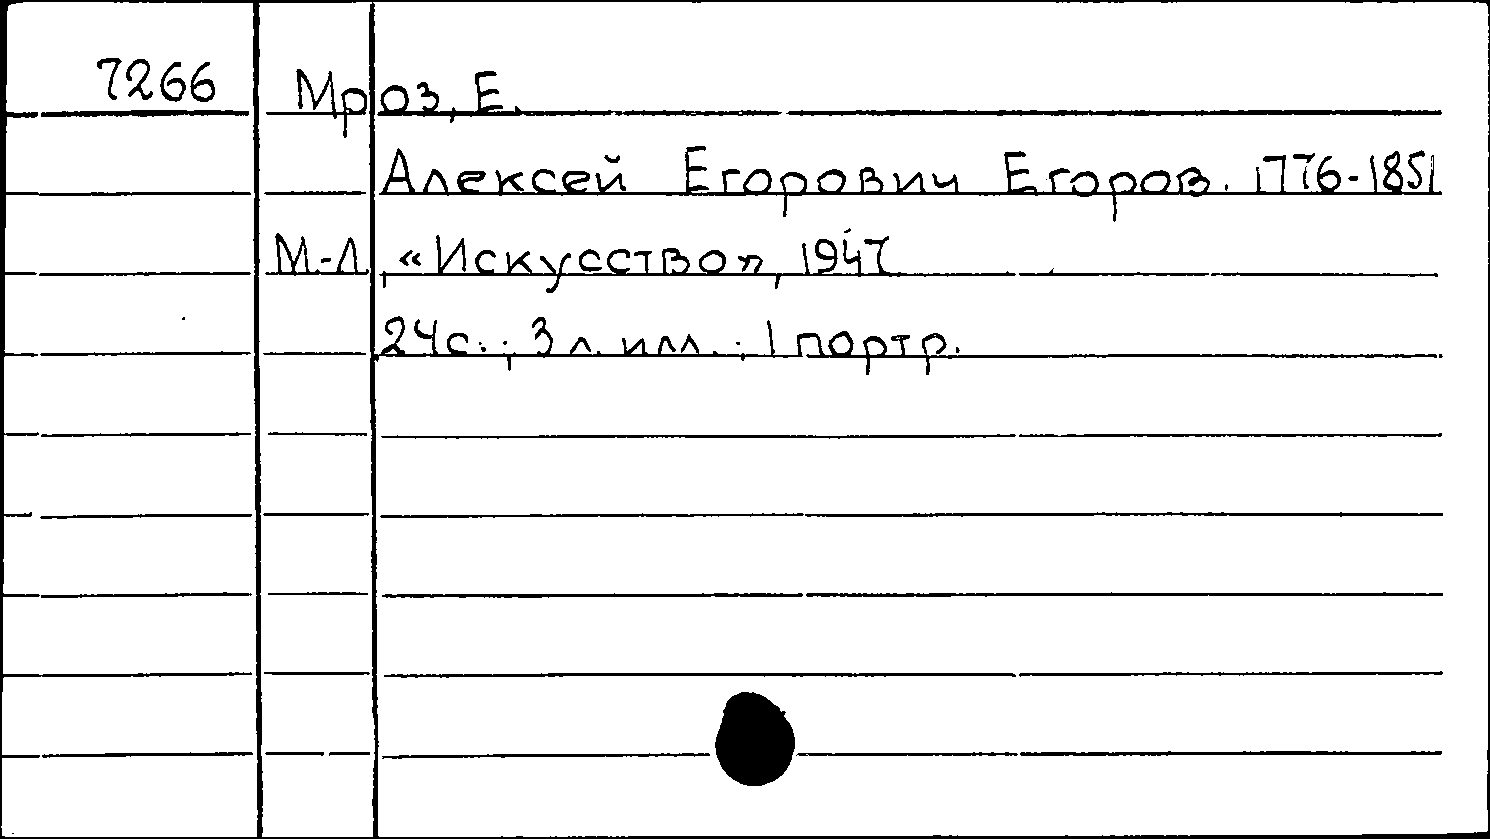 7266 Мроз, Е.
Алексей Егорович Егоров. 1776-1851
М.-Л., «Искусство», 1947
24с.; 3 л. илл.; 1 портр.